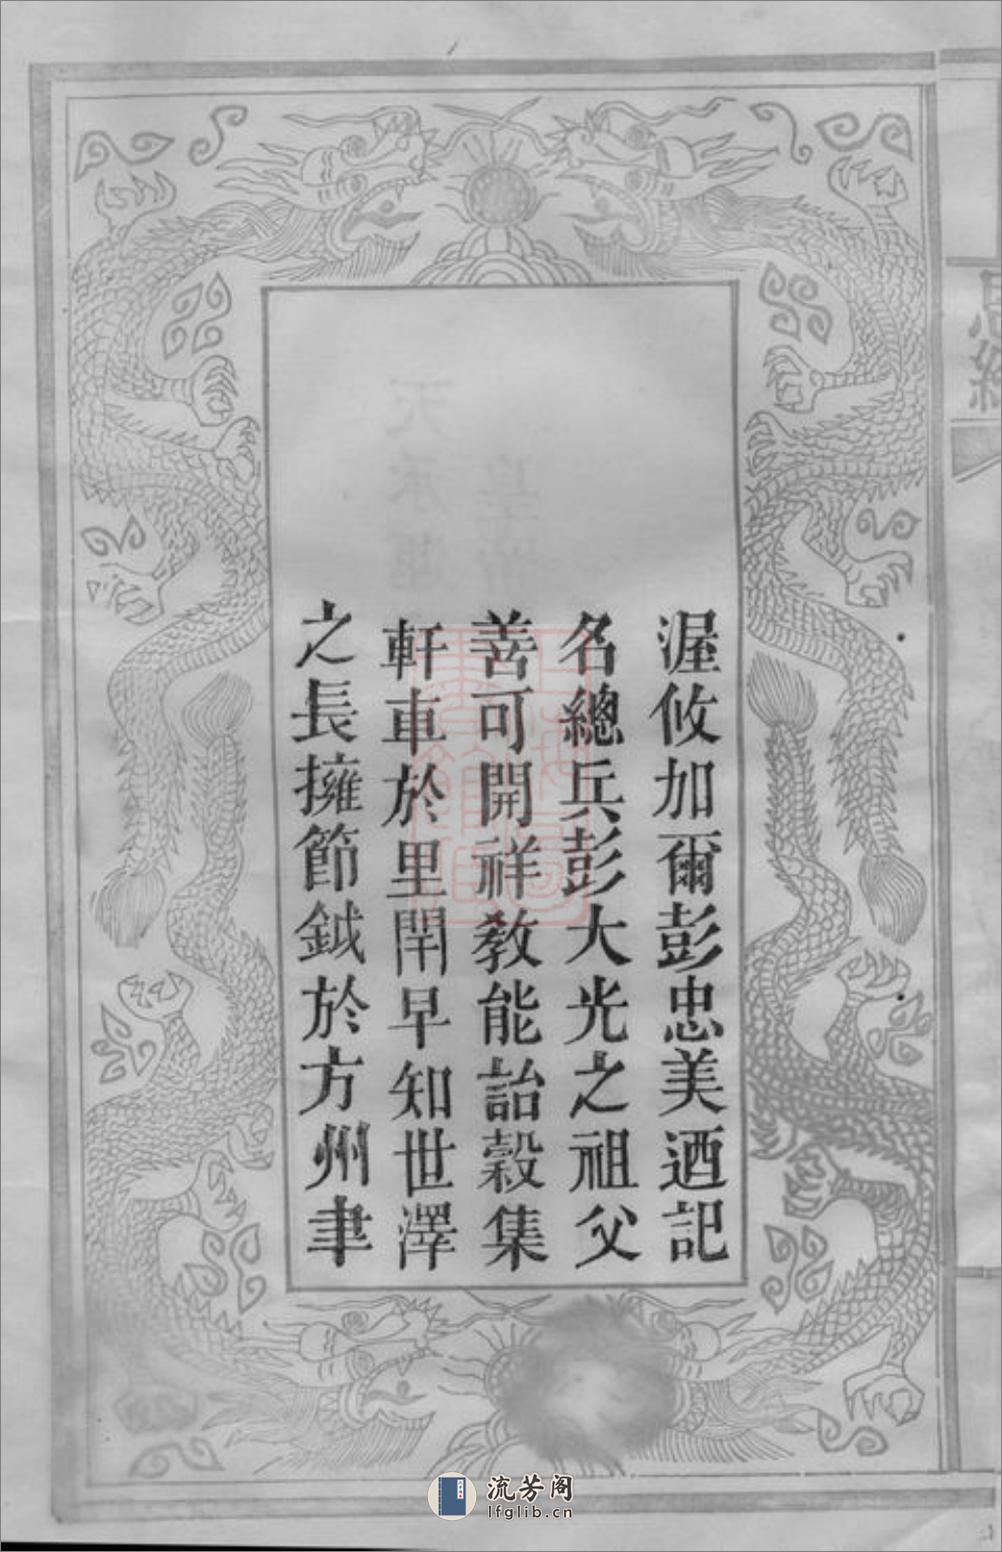 渥攸加爾彭忠美迺記
名總兵彭大光之祖父
善可開祥敎能詒穀集
軒車於里閈早知世澤
之長擁節鉞於方州聿
流芳阁
lfglib.cn